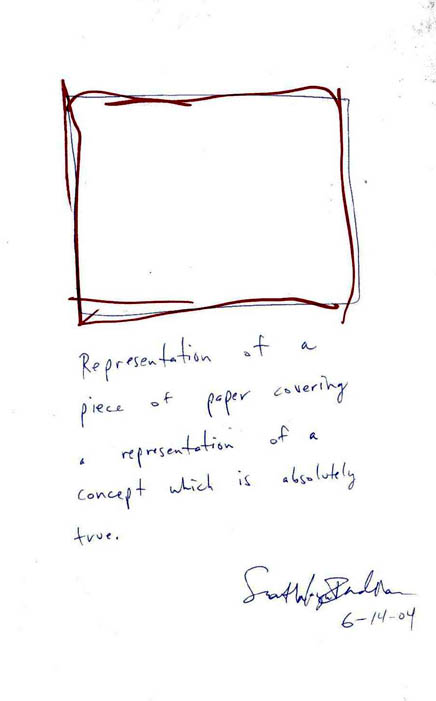 Representation of a
piece of paper covering
a representation of a
concept which is absolutely
true.
6-14-04